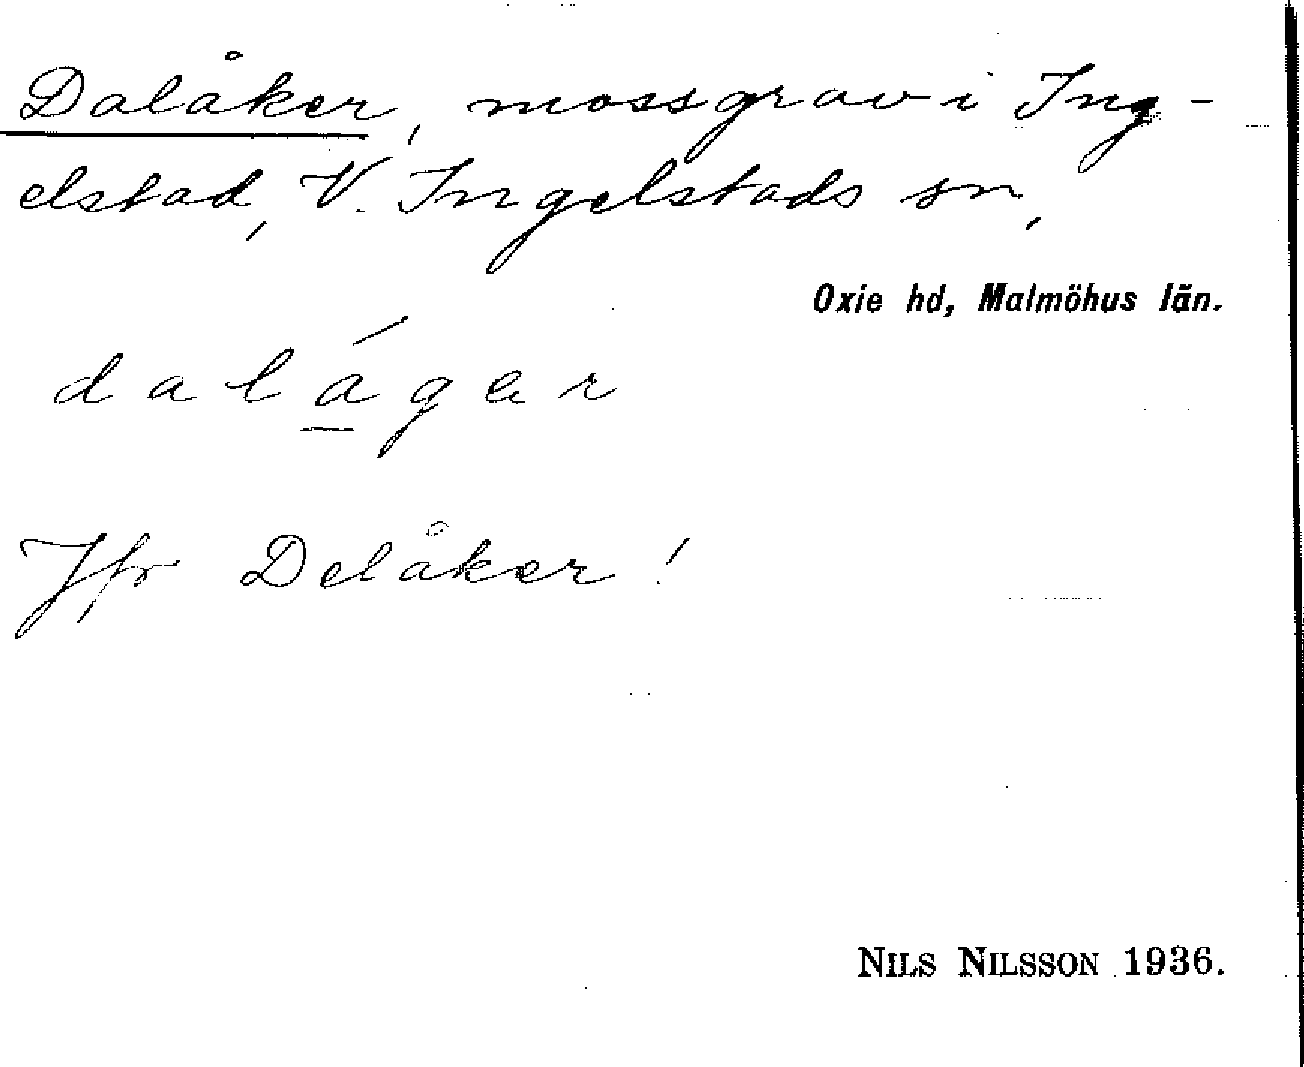 Dalåker, mossgrav i Ing-
elstad, V. Ingelstads sn,
Oxie hd, Malmöhus län.
dalágar
Jfr Delåker!
NILS NILSSON 1936.